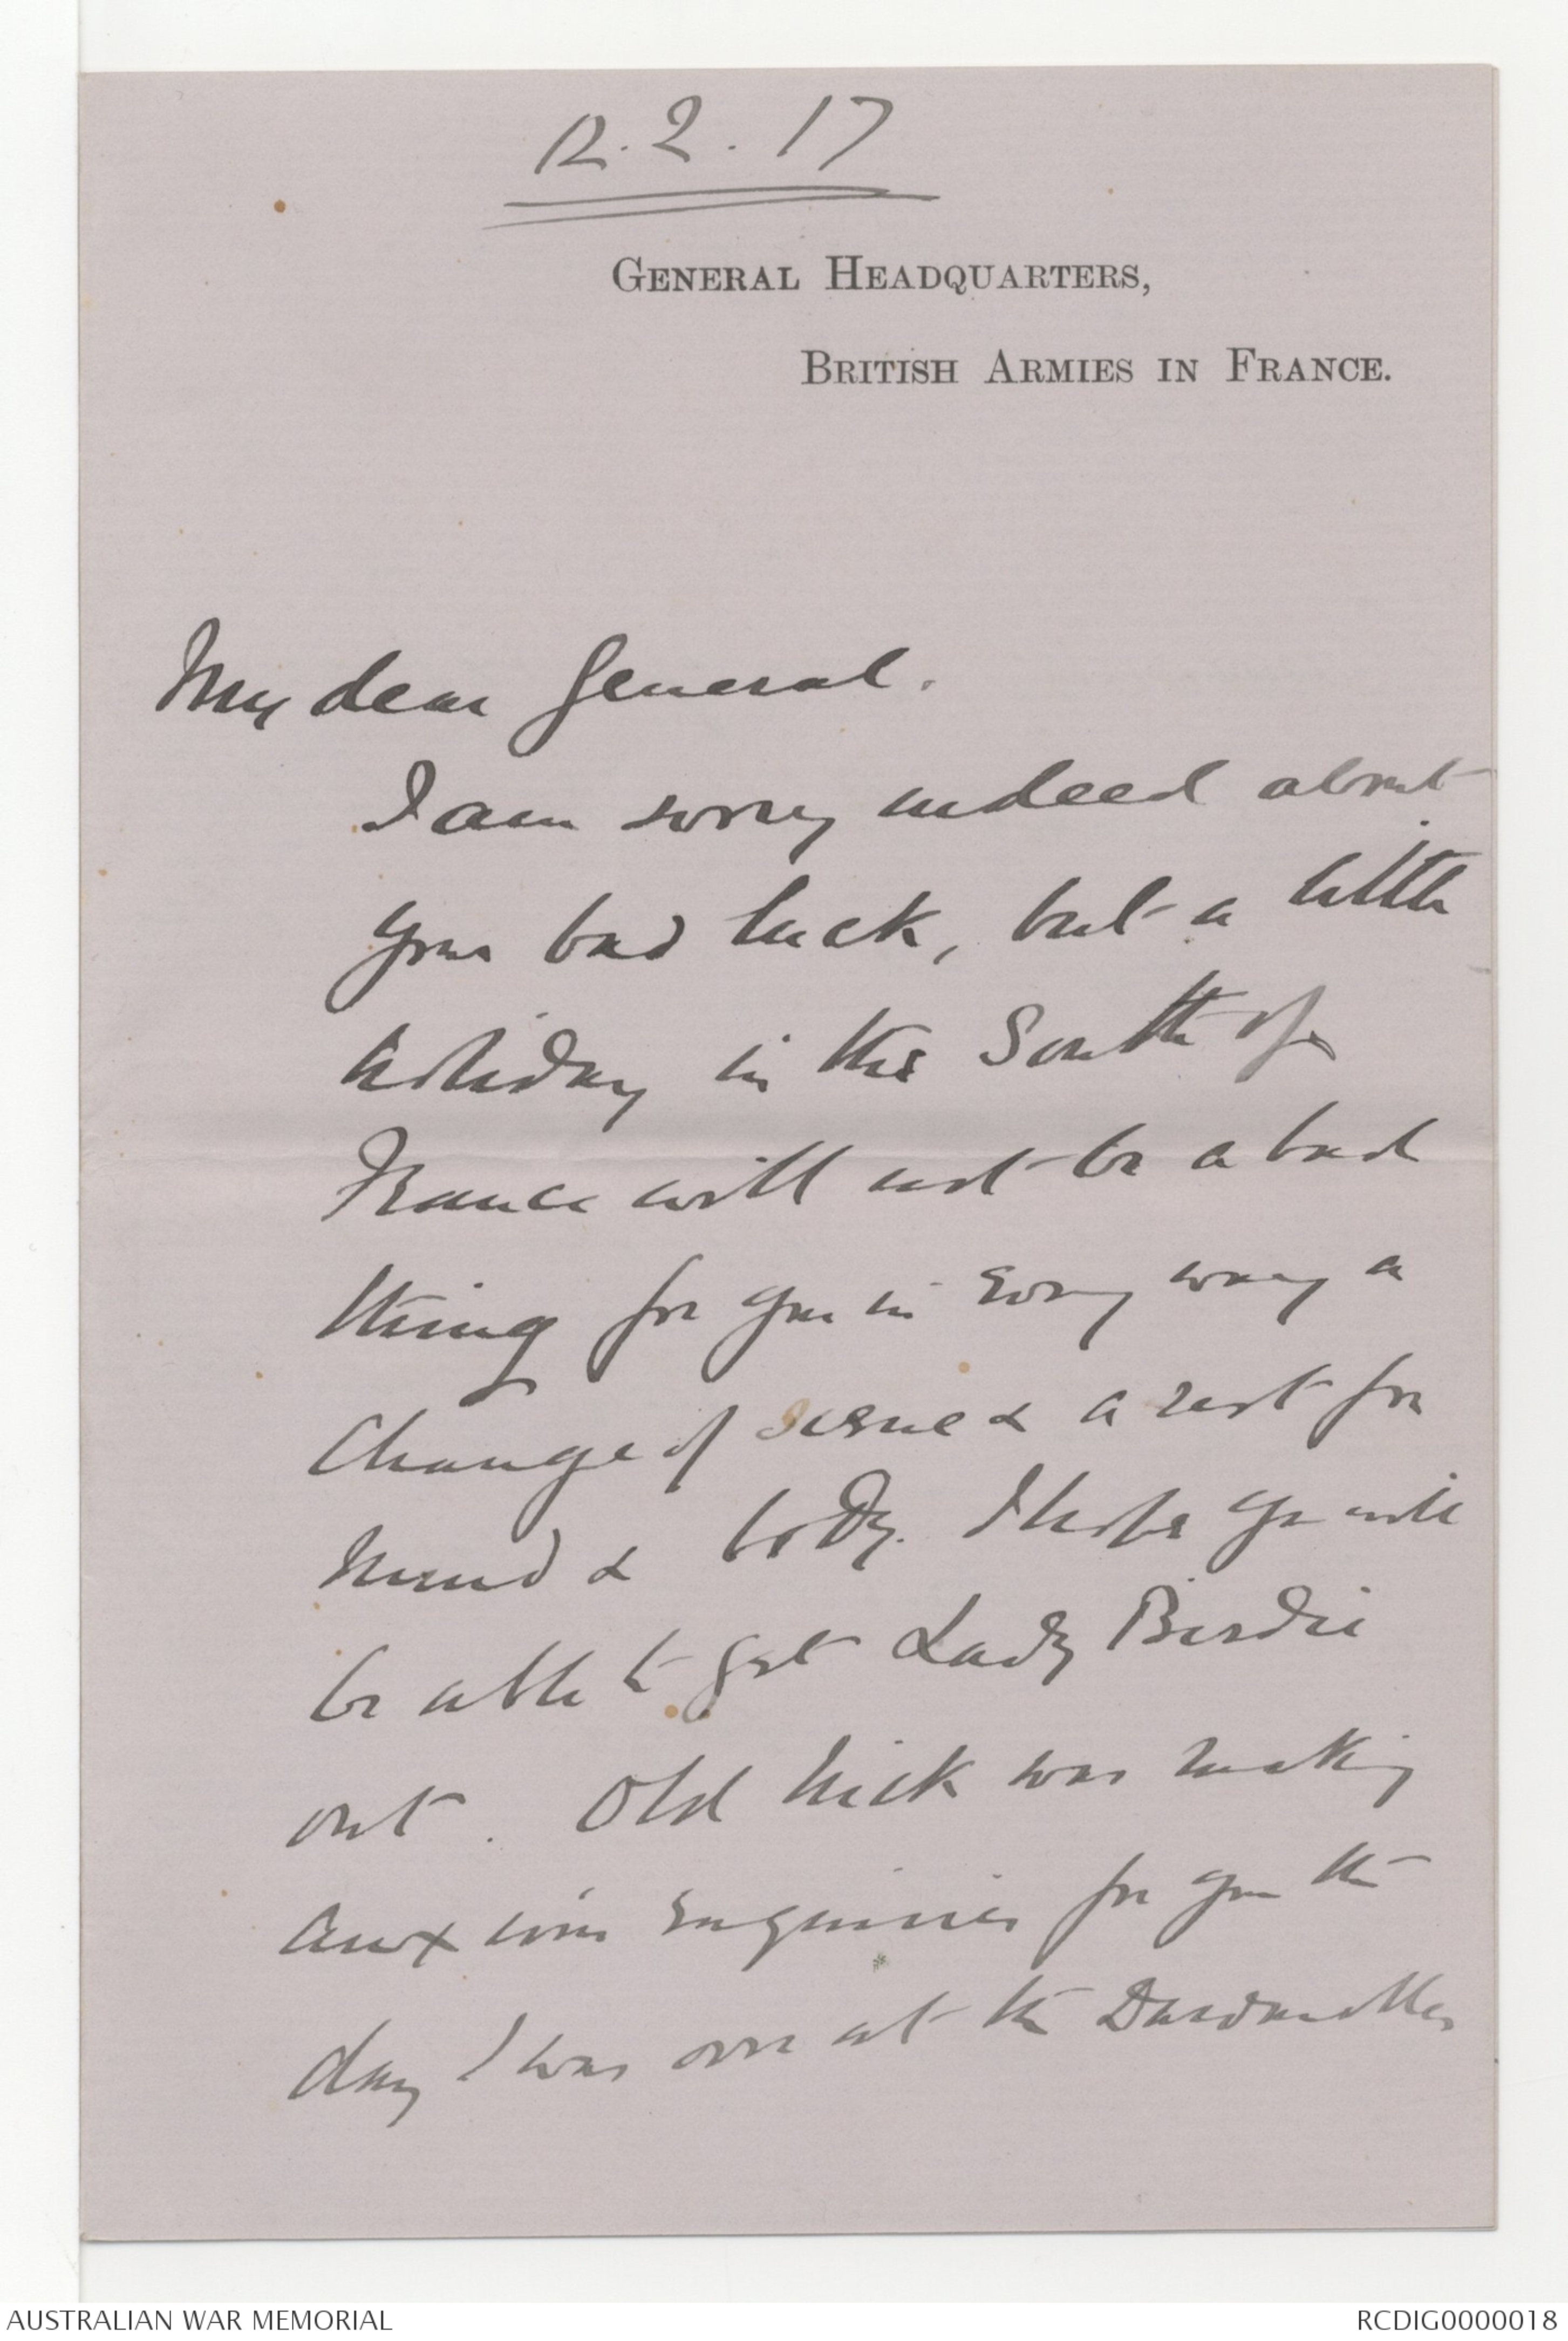 12.2.17
GENERAL HEADQUARTERS,
BRITISH ARMIES IN FRANCE.
My dear General.
I am sorry indeed about
your bad luck, but a little
holiday in the South of
France will not be a bad
thing for you in every way a
change of scene & a rest for
mind & body. I hope you will
be able to get Lady Birdie
out. Old Nick was making
anxious enquiries for you the
day I was over at the Dardanelles
AUSTRALIAN WAR MEMORIAL
RCDIG0000018